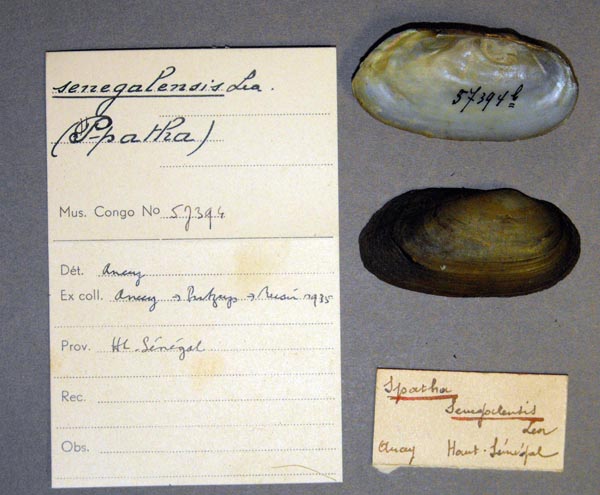 senegalensis Lea.
(Spatha)
Mus. Congo No 57394
Dét. Ancey
Ex coll. Ancey → → 1935
Prov. Ht. Sénégal
Rec.
Obs.
57394 b
Spatha
Senegalensis
Lea
Ancey Haut-Sénégal